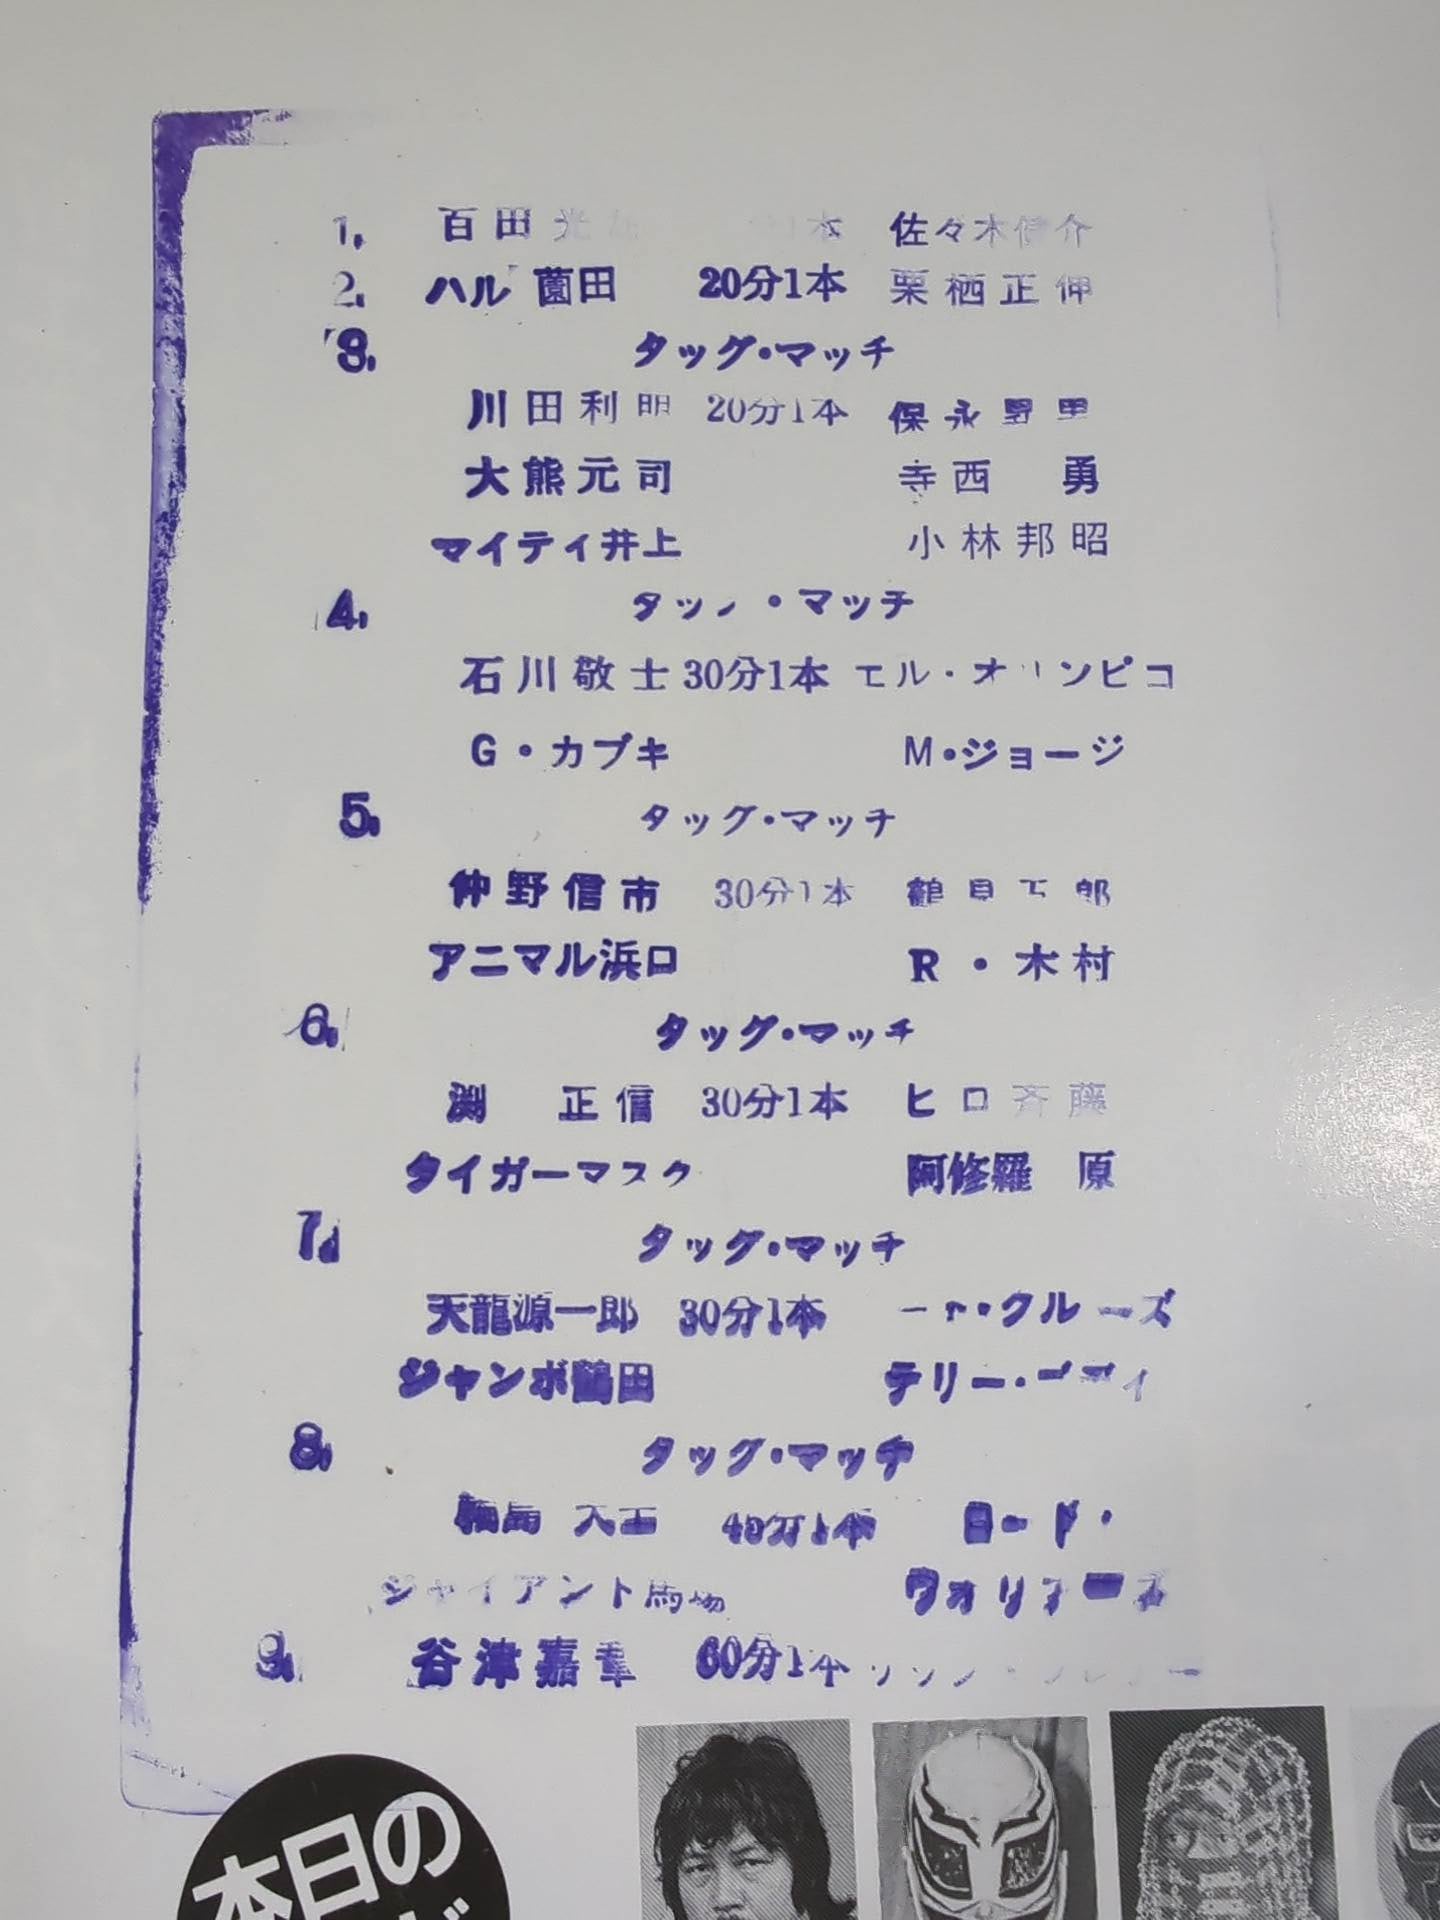 1. 百田光雄 1本 佐々木健介
2. ハル薗田 20分1本 栗栖正伸
3. タッグ・マッチ
川田利明 20分1本 保永昇男
大熊元司 寺西 勇
マイティ井上 小林邦昭
4. タッグ・マッチ
石川敬士 30分1本 エル・オリンピコ
G・カブキ M・ジョージ
5. タッグ・マッチ
仲野信市 30分1本 鶴見五郎
アニマル浜口 R・木村
6. タッグ・マッチ
渕 正信 30分1本 ヒロ斉藤
タイガーマスク 阿修羅 原
7. タッグ・マッチ
天龍源一郎 30分1本 クルーズ
ジャンボ鶴田 テリー・ゴディ
8. タッグ・マッチ
輪島 大士 40分1本 ロード・
ジャイアント馬場 ウォリアーズ
9. 谷津嘉章 60分1本
本日の